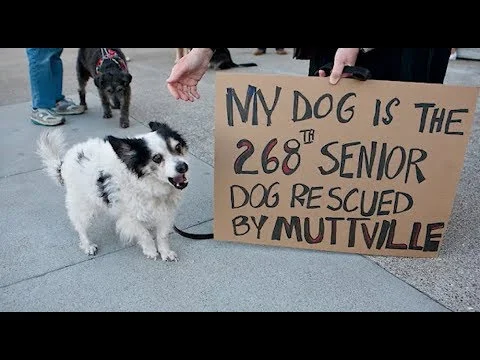 MY DOG IS THE
268TH SENIOR
DOG RESCUED
BY MUTTVILLE